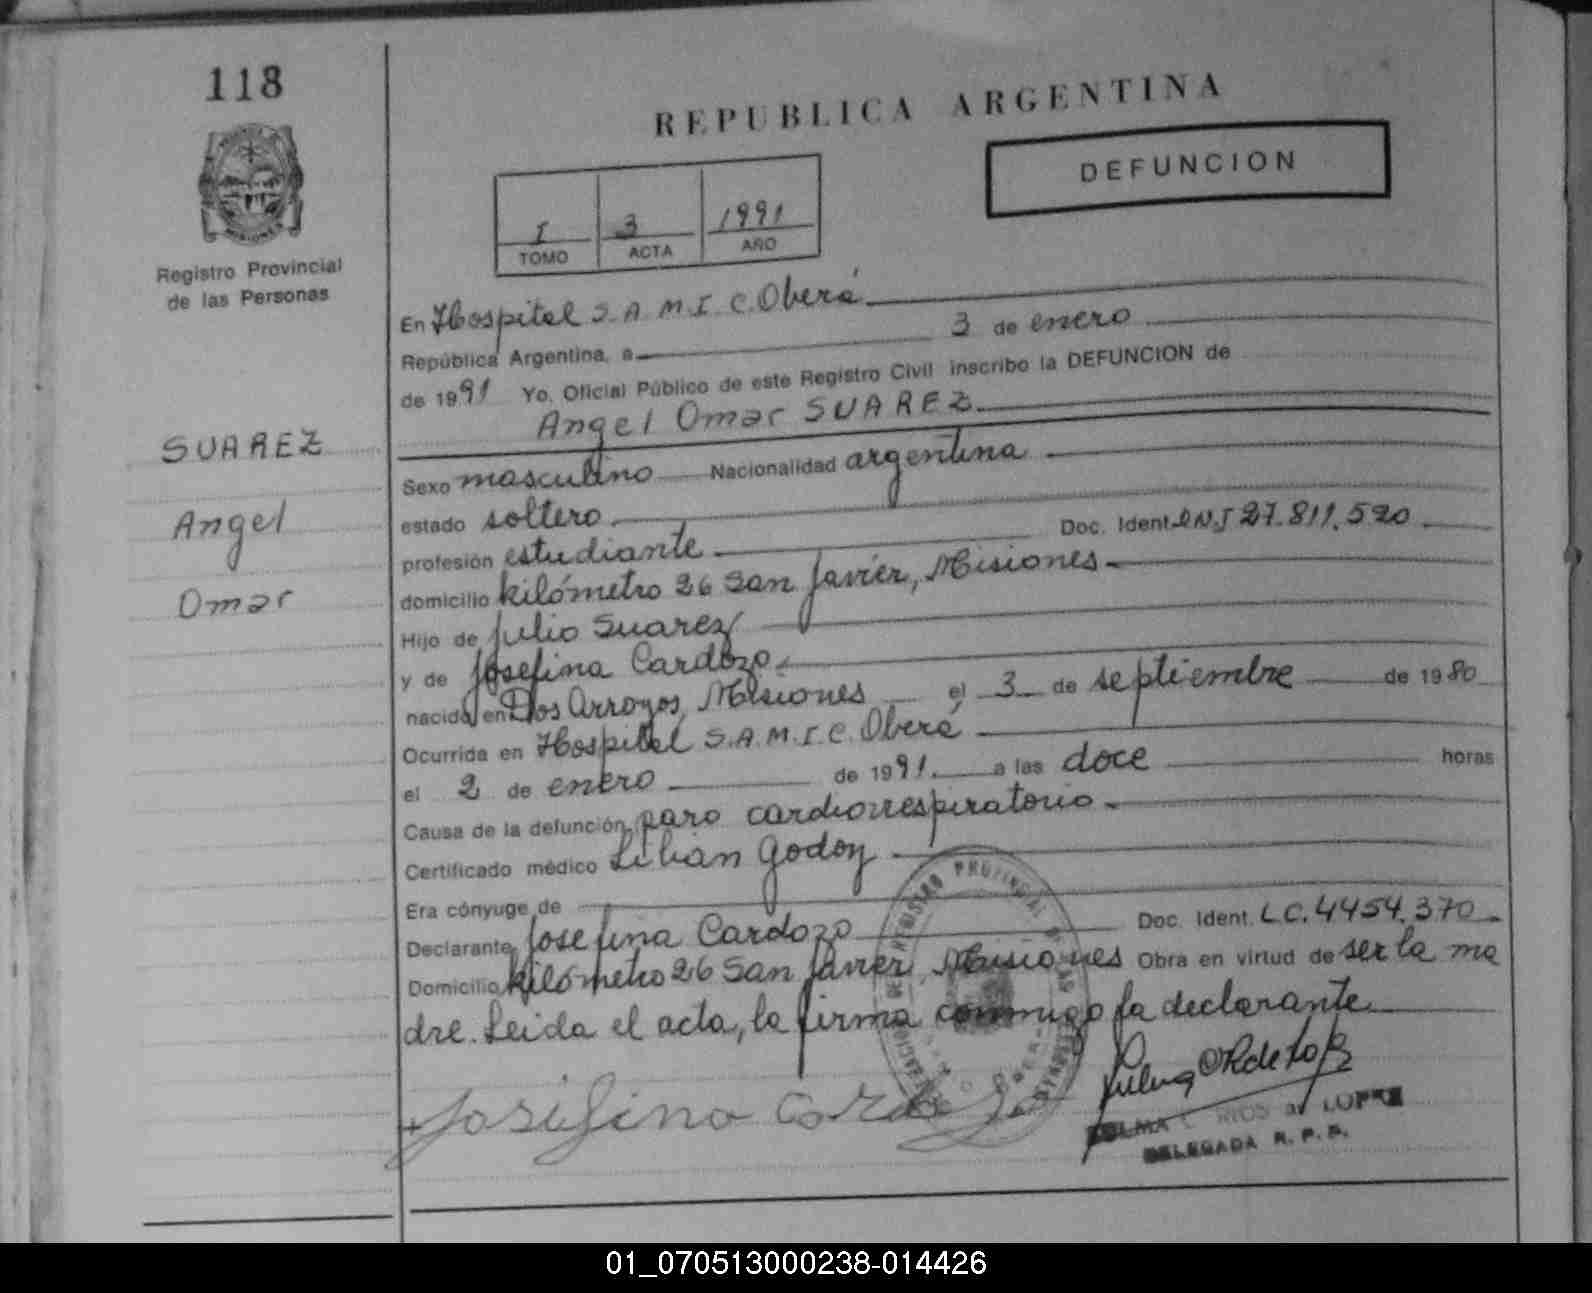 118
REPUBLICA ARGENTINA
DEFUNCION
MISIONES
Registro Provincial
de las Personas
I 3 1991
TOMO ACTA AÑO
En Hospital S.A.M.I.C. Oberá
República Argentina, a 3 de enero
de 1991 Yo, Oficial Público de este Registro Civil inscribo la DEFUNCION de
Angel Omar SUAREZ
SUAREZ
Angel
Omar
Sexo masculino Nacionalidad argentina
estado soltero
profesión estudiante Doc. Ident. DNI 27.811.520
domicilio kilómetro 26 San Javier, Misiones
Hijo de Julio Suarez
y de Josefina Cardozo
nacido en Dos Arroyos, Misiones el 3 de septiembre de 1980
Ocurrida en Hospital S.A.M.I.C. Oberá
el 2 de enero de 1991 a las doce horas
Causa de la defunción paro cardiorrespiratorio
Certificado médico Lilian Godoy
Era cónyuge de
Declarante Josefina Cardozo Doc. Ident. L.C. 4454.370
Domicilio kilómetro 26 San Javier, Misiones Obra en virtud de ser la ma
dre. Leida el acta, la firma conmigo la declarante
Josifina Cardozo
RIOS de LOPEZ
DELEGADA R. P. P.
01_070513000238-014426